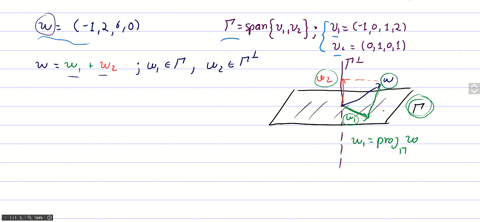 w = (-1,2,6,0)
Γ = span{v₁,v₂} ; { v₁ = (-1,0,1,2)
v₂ = (0,1,0,1)
w = w₁ + w₂ ; w₁ ∈ Γ, w₂ ∈ Γ⊥
Γ⊥
w₂
w
w₁
Γ
w₁ = proj_Γ w